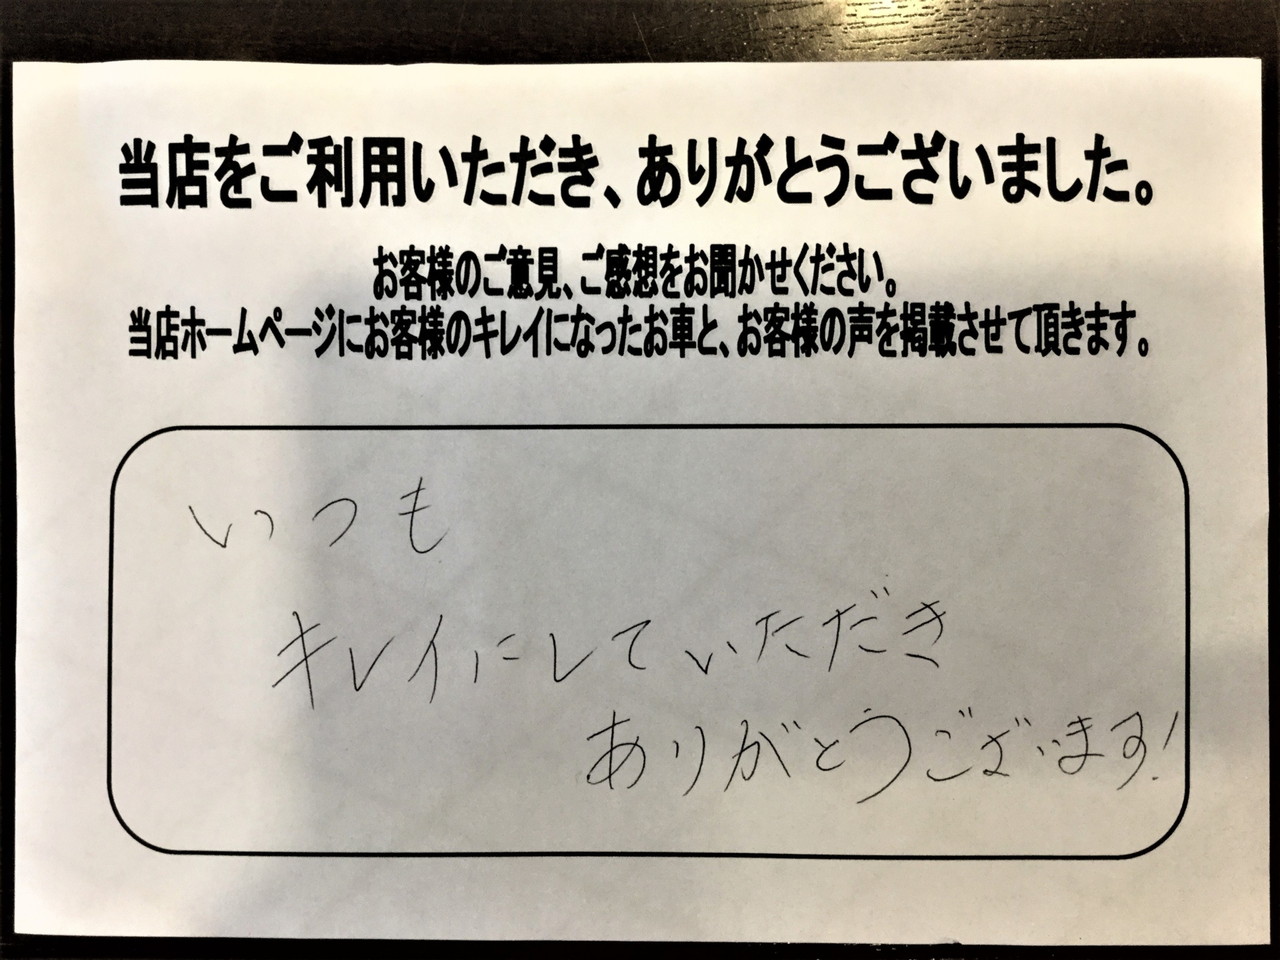 当店をご利用いただき、ありがとうございました。
お客様のご意見、ご感想をお聞かせください。
当店ホームページにお客様のキレイになったお車と、お客様の声を掲載させて頂きます。
いつも
キレイにしていただき
ありがとうございます!